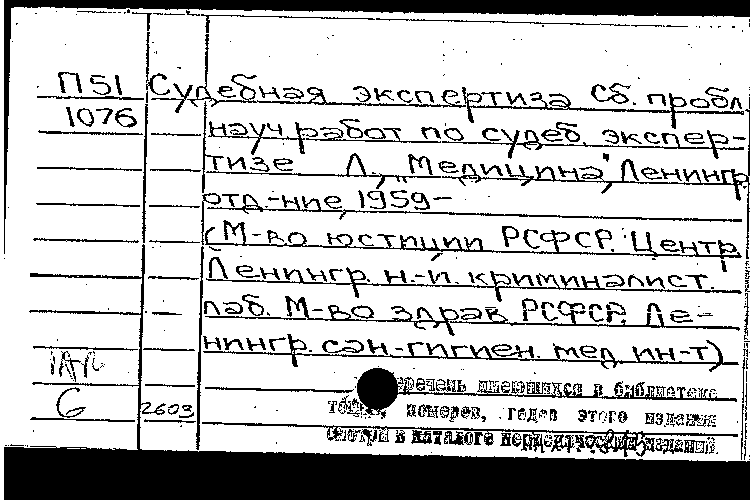 П51 Судебная экспертиза Сб. пробл.
1076 науч работ по судеб. экспер-
тизе Л., "Медицина", Ленингр.
отд-ние, 1959-
(М-во юстиции РСФСР. Центр.
Ленингр. н.-и. криминалист.
лаб. М-во здрав РСФСР. Ле-
нингр. сан-гигиен. мед. ин-т)
перечень имеющихся в библиотеке
6 2603 томов, номеров, годов этого издания
смотри в каталоге периодических изданий.